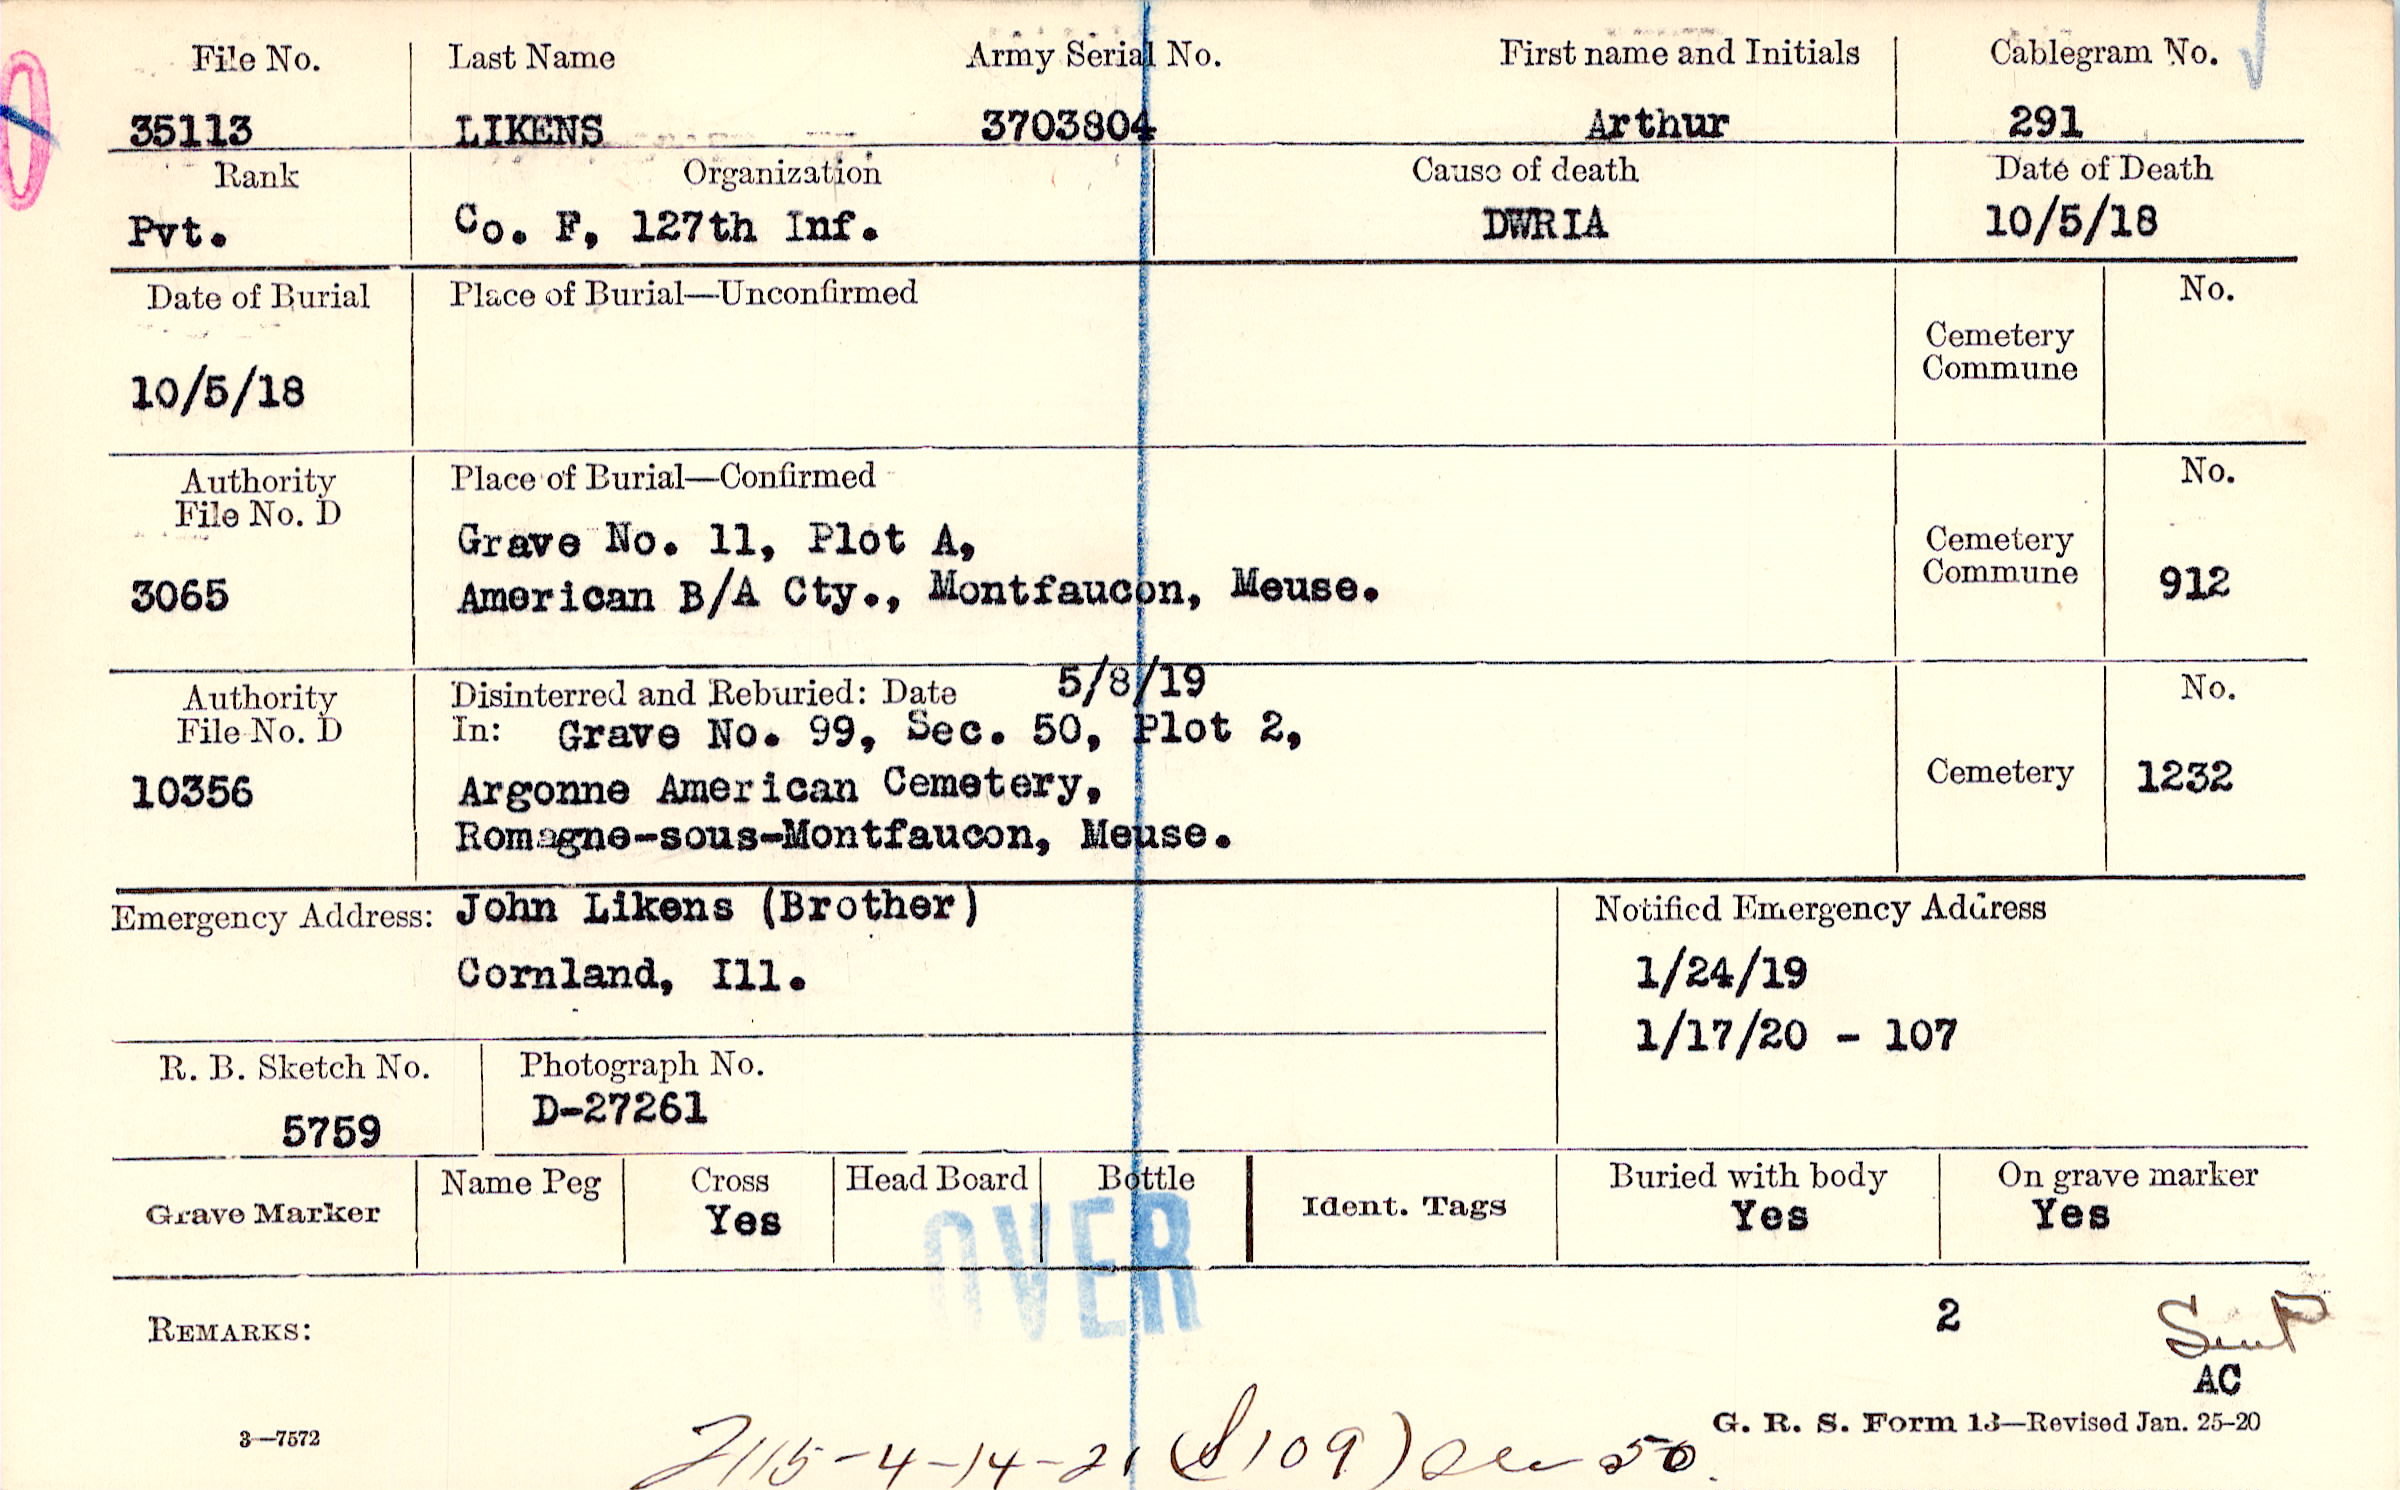 File No. Last Name Army Serial No. First name and Initials Cablegram No.
35113 LIKENS 3703804 Arthur 291
Rank Organization Cause of death Date of Death
Pvt. Co. F, 127th Inf. DWRIA 10/5/18
Date of Burial Place of Burial—Unconfirmed No.
Cemetery
Commune
10/5/18
Authority Place of Burial—Confirmed No.
File No. D
Grave No. 11, Plot A,
Cemetery
3065 American B/A Cty., Montfaucon, Meuse. Commune 912
Authority Disinterred and Reburied: Date 5/8/19 No.
File No. D In: Grave No. 99, Sec. 50, Plot 2,
10356 Argonne American Cemetery, Cemetery 1232
Romagne-sous-Montfaucon, Meuse.
Emergency Address: John Likens (Brother) Notified Emergency Address
Cornland, Ill. 1/24/19
1/17/20 - 107
R. B. Sketch No. Photograph No.
5759 D-27261
Grave Marker Name Peg Cross Head Board Bottle Ident. Tags Buried with body On grave marker
Yes Yes Yes
OVER
REMARKS: 2 Sent
AC
3—7572 G. R. S. Form 13—Revised Jan. 25-20
2115-4-14-21 109) Sec 50.